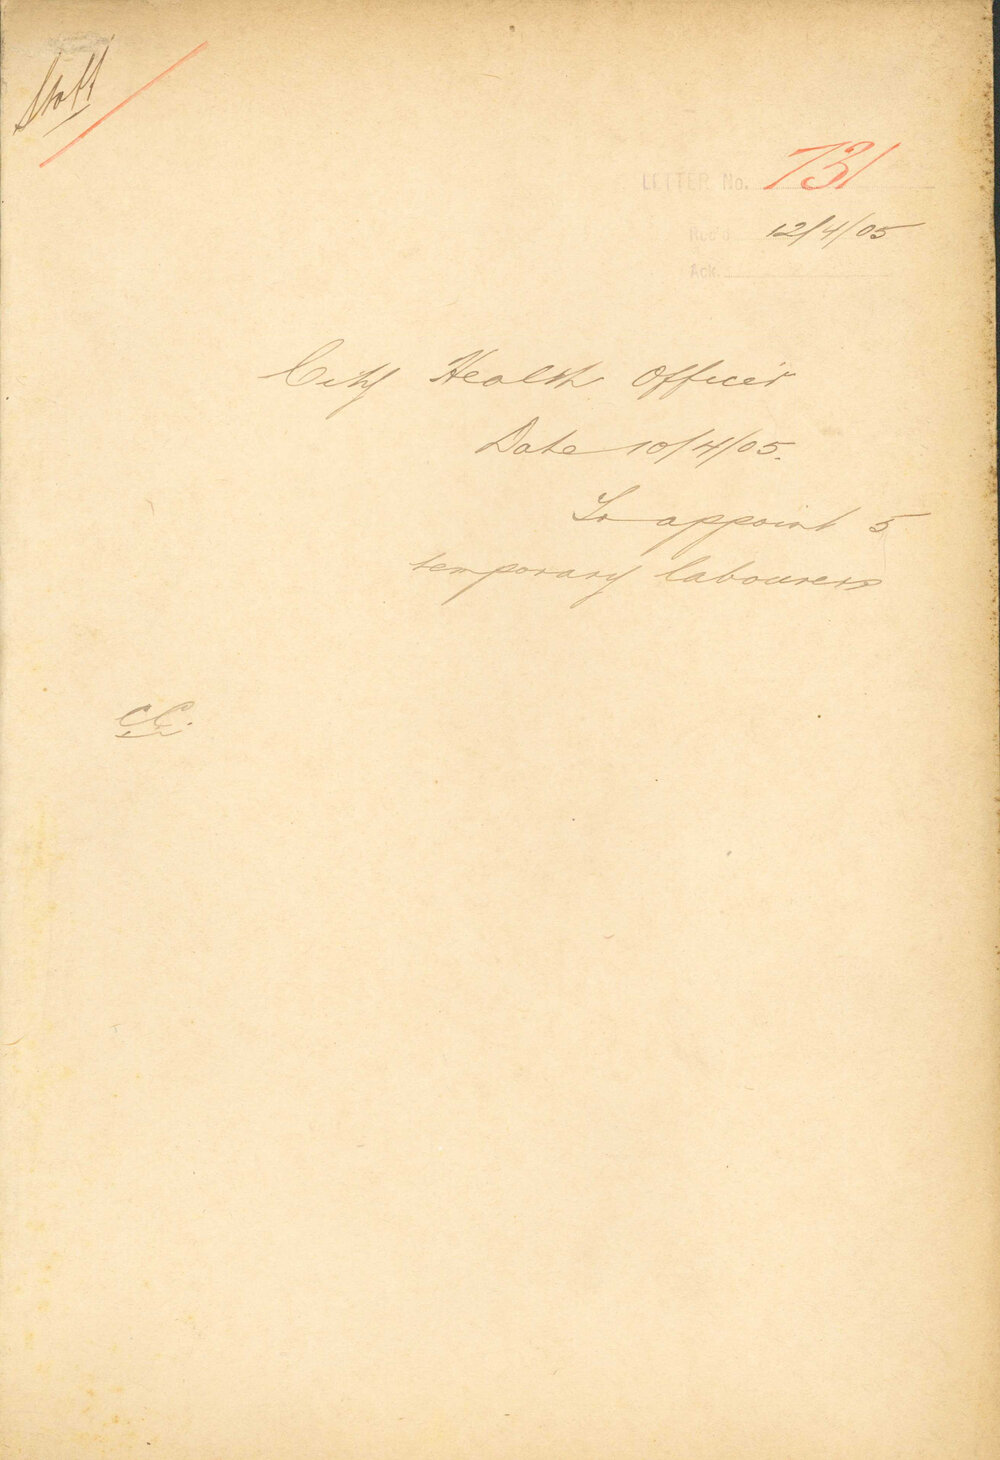 Staff
LETTER No. 731
Rec'd 12/4/05
Ack.
City Health Officer
Date 10/4/05.
To appoint 5
temporary labourers
CC.